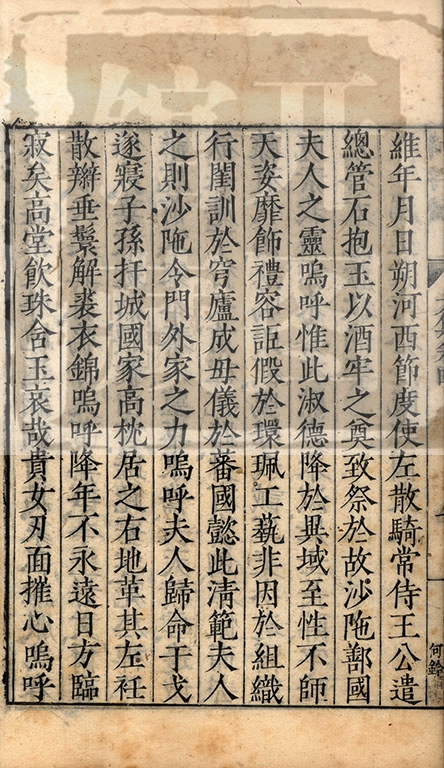 維年月日朔河西節度使左散騎常侍王公遣
總管石抱玉以酒牢之奠致祭於故沙陁鄯國
夫人之靈嗚呼惟此淑德降於異域至性不師
天姿靡飾禮容詎假於環珮工藝非因於組織
行閨訓於穹廬成毋儀於蕃國懿此淸範夫人
之則沙陁令門外家之力嗚呼夫人歸命干戈
遂寢子孫扞城國家高枕居之右地革其左衽
散辮垂鬟解裘衣錦嗚呼降年不永遠日方臨
寂矣高堂飮珠含玉哀哉貴女刃面摧心嗚呼
何鈴